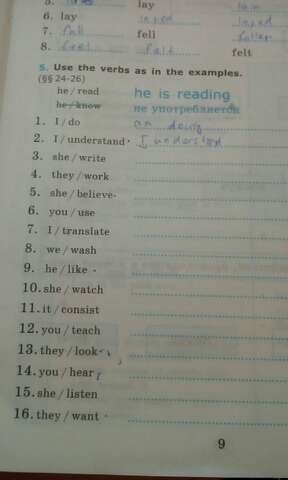 5. lay
6. lay laped laped
7. fall fell fallen
8. feel felt felt
5. Use the verbs as in the examples.
(§§ 24-26)
he / read he is reading
he / know не употребляется
1. I / do am doing
2. I / understand I understand
3. she / write
4. they / work
5. she / believe
6. you / use
7. I / translate
8. we / wash
9. he / like
10. she / watch
11. it / consist
12. you / teach
13. they / look
14. you / hear
15. she / listen
16. they / want
9